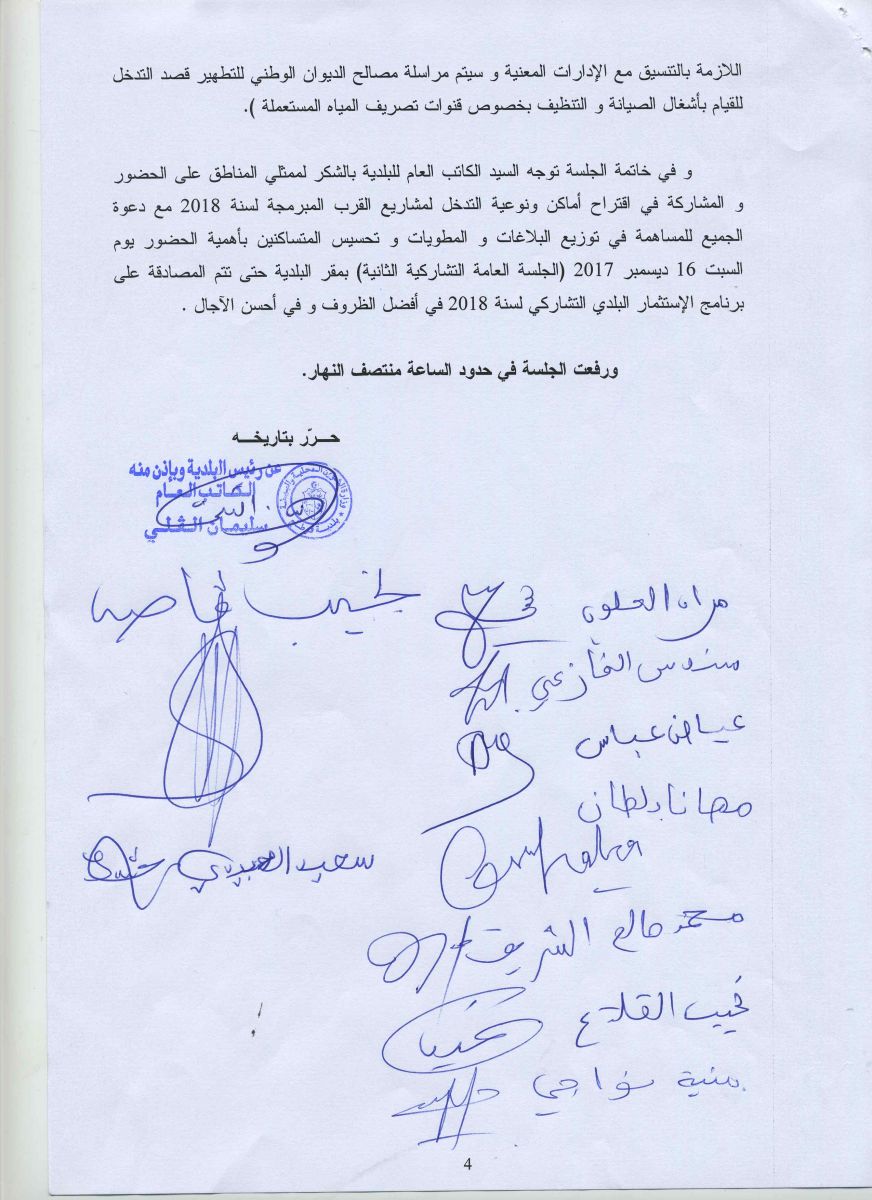 اللازمة بالتنسيق مع الإدارات المعنية و سيتم مراسلة مصالح الديوان الوطني للتطهير قصد التدخل
للقيام بأشغال الصيانة و التنظيف بخصوص قنوات تصريف المياه المستعملة ).
و في خاتمة الجلسة توجه السيد الكاتب العام للبلدية بالشكر لممثلي المناطق على الحضور
و المشاركة في اقتراح أماكن ونوعية التدخل لمشاريع القرب المبرمجة لسنة 2018 مع دعوة
الجميع للمساهمة في توزيع البلاغات و المطويات و تحسيس المتساكنين بأهمية الحضور يوم
السبت 16 ديسمبر 2017 (الجلسة العامة التشاركية الثانية) بمقر البلدية حتى تتم المصادقة على
برنامج الإستثمار البلدي التشاركي لسنة 2018 في أفضل الظروف و في أحسن الآجال .
ورفعت الجلسة في حدود الساعة منتصف النهار.
حـــرّر بتاريخـــه
عن رئيس البلدية وبإذن منه
الكاتب العام
سليمان
نجيب
عباس
سعيد
محمد صالح الشريف
نجيب القلاع
منية
4